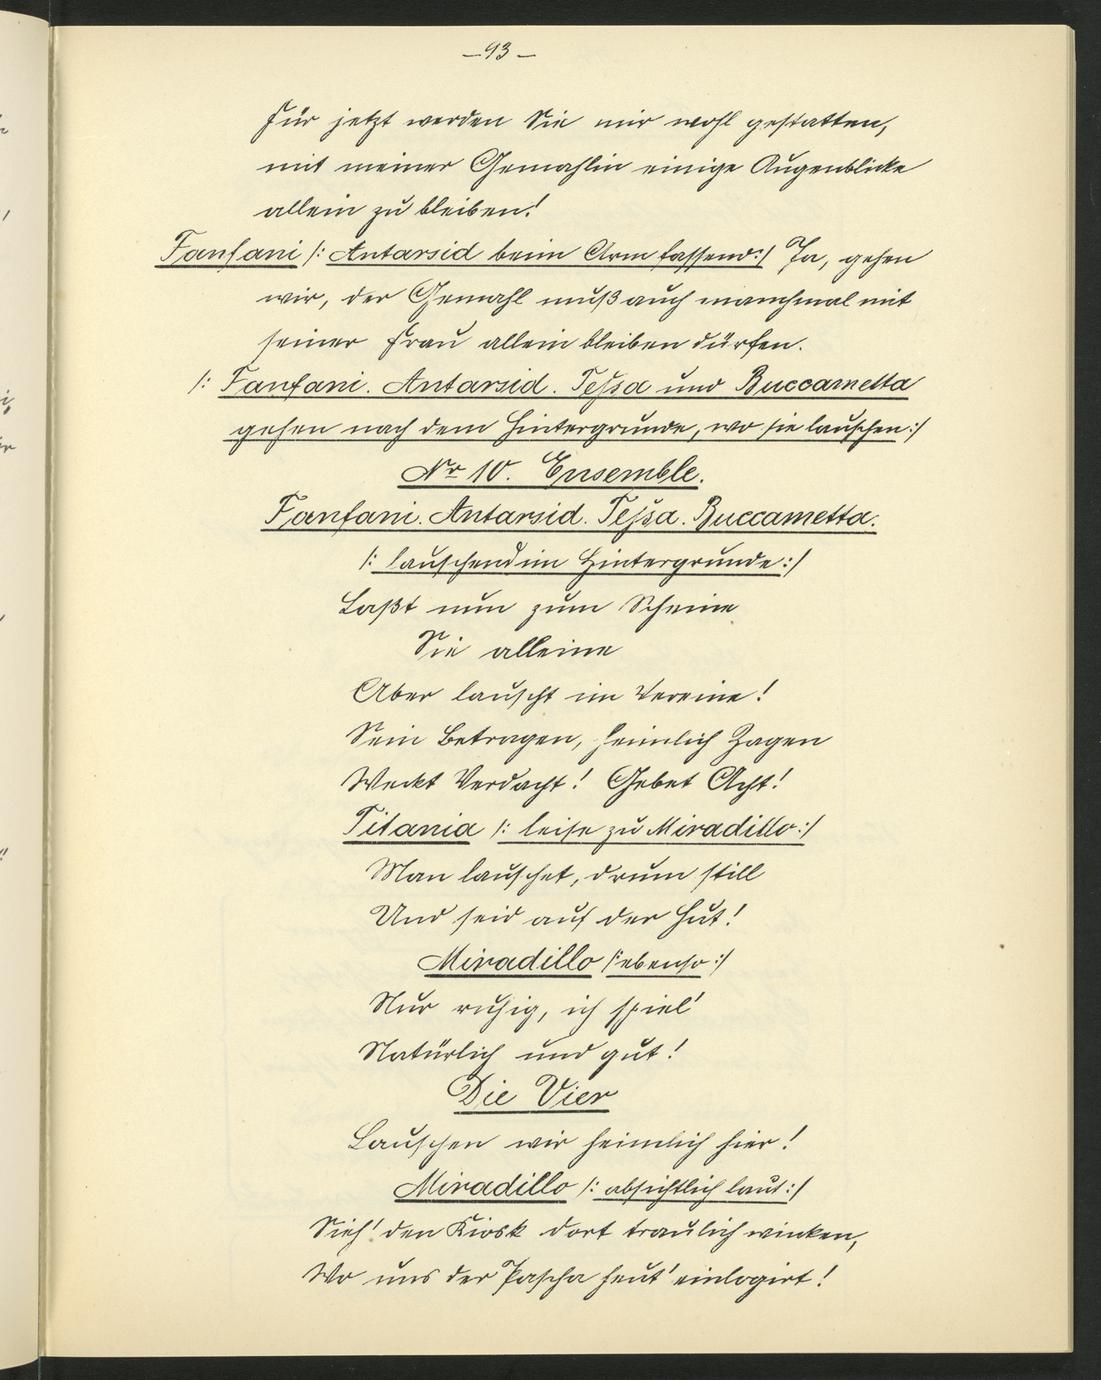 – 93 –
Für jetzt werden Sie mir wohl gestatten,
mit meiner Gemahlin einige Augenblicke
allein zu bleiben!
Fanfani /: Antarsid beim Arm fassend:/ Ja, gehen
wir, der Gemahl muß auch manchmal mit
seiner Frau allein bleiben dürfen.
/: Fanfani. Antarsid. Teßa und Buccametta
gehen nach dem Hintergrunde, wo sie lauschen:/
No 10. Ensemble.
Fanfani. Antarsid. Teßa. Buccametta.
/: lauschend im Hintergrunde:/
Laßt nun zum Scheine
Sie alleine
Aber lauscht im Vereine!
Sein Betragen, heimlich Zagen
Weckt Verdacht! Gebet Acht!
Titania /: leise zu Miradillo:/
Man lauschet, drum still
Und seid auf der Hut!
Miradillo /: ebenso:/
Nur ruhig, ich spiel'
Natürlich und gut!
Die Vier
Lauschen wir heimlich hier!
Miradillo /: absichtlich laut:/
Sieh' den Kiosk dort traulich winken,
Wo uns der Pascha heut' einlogirt!